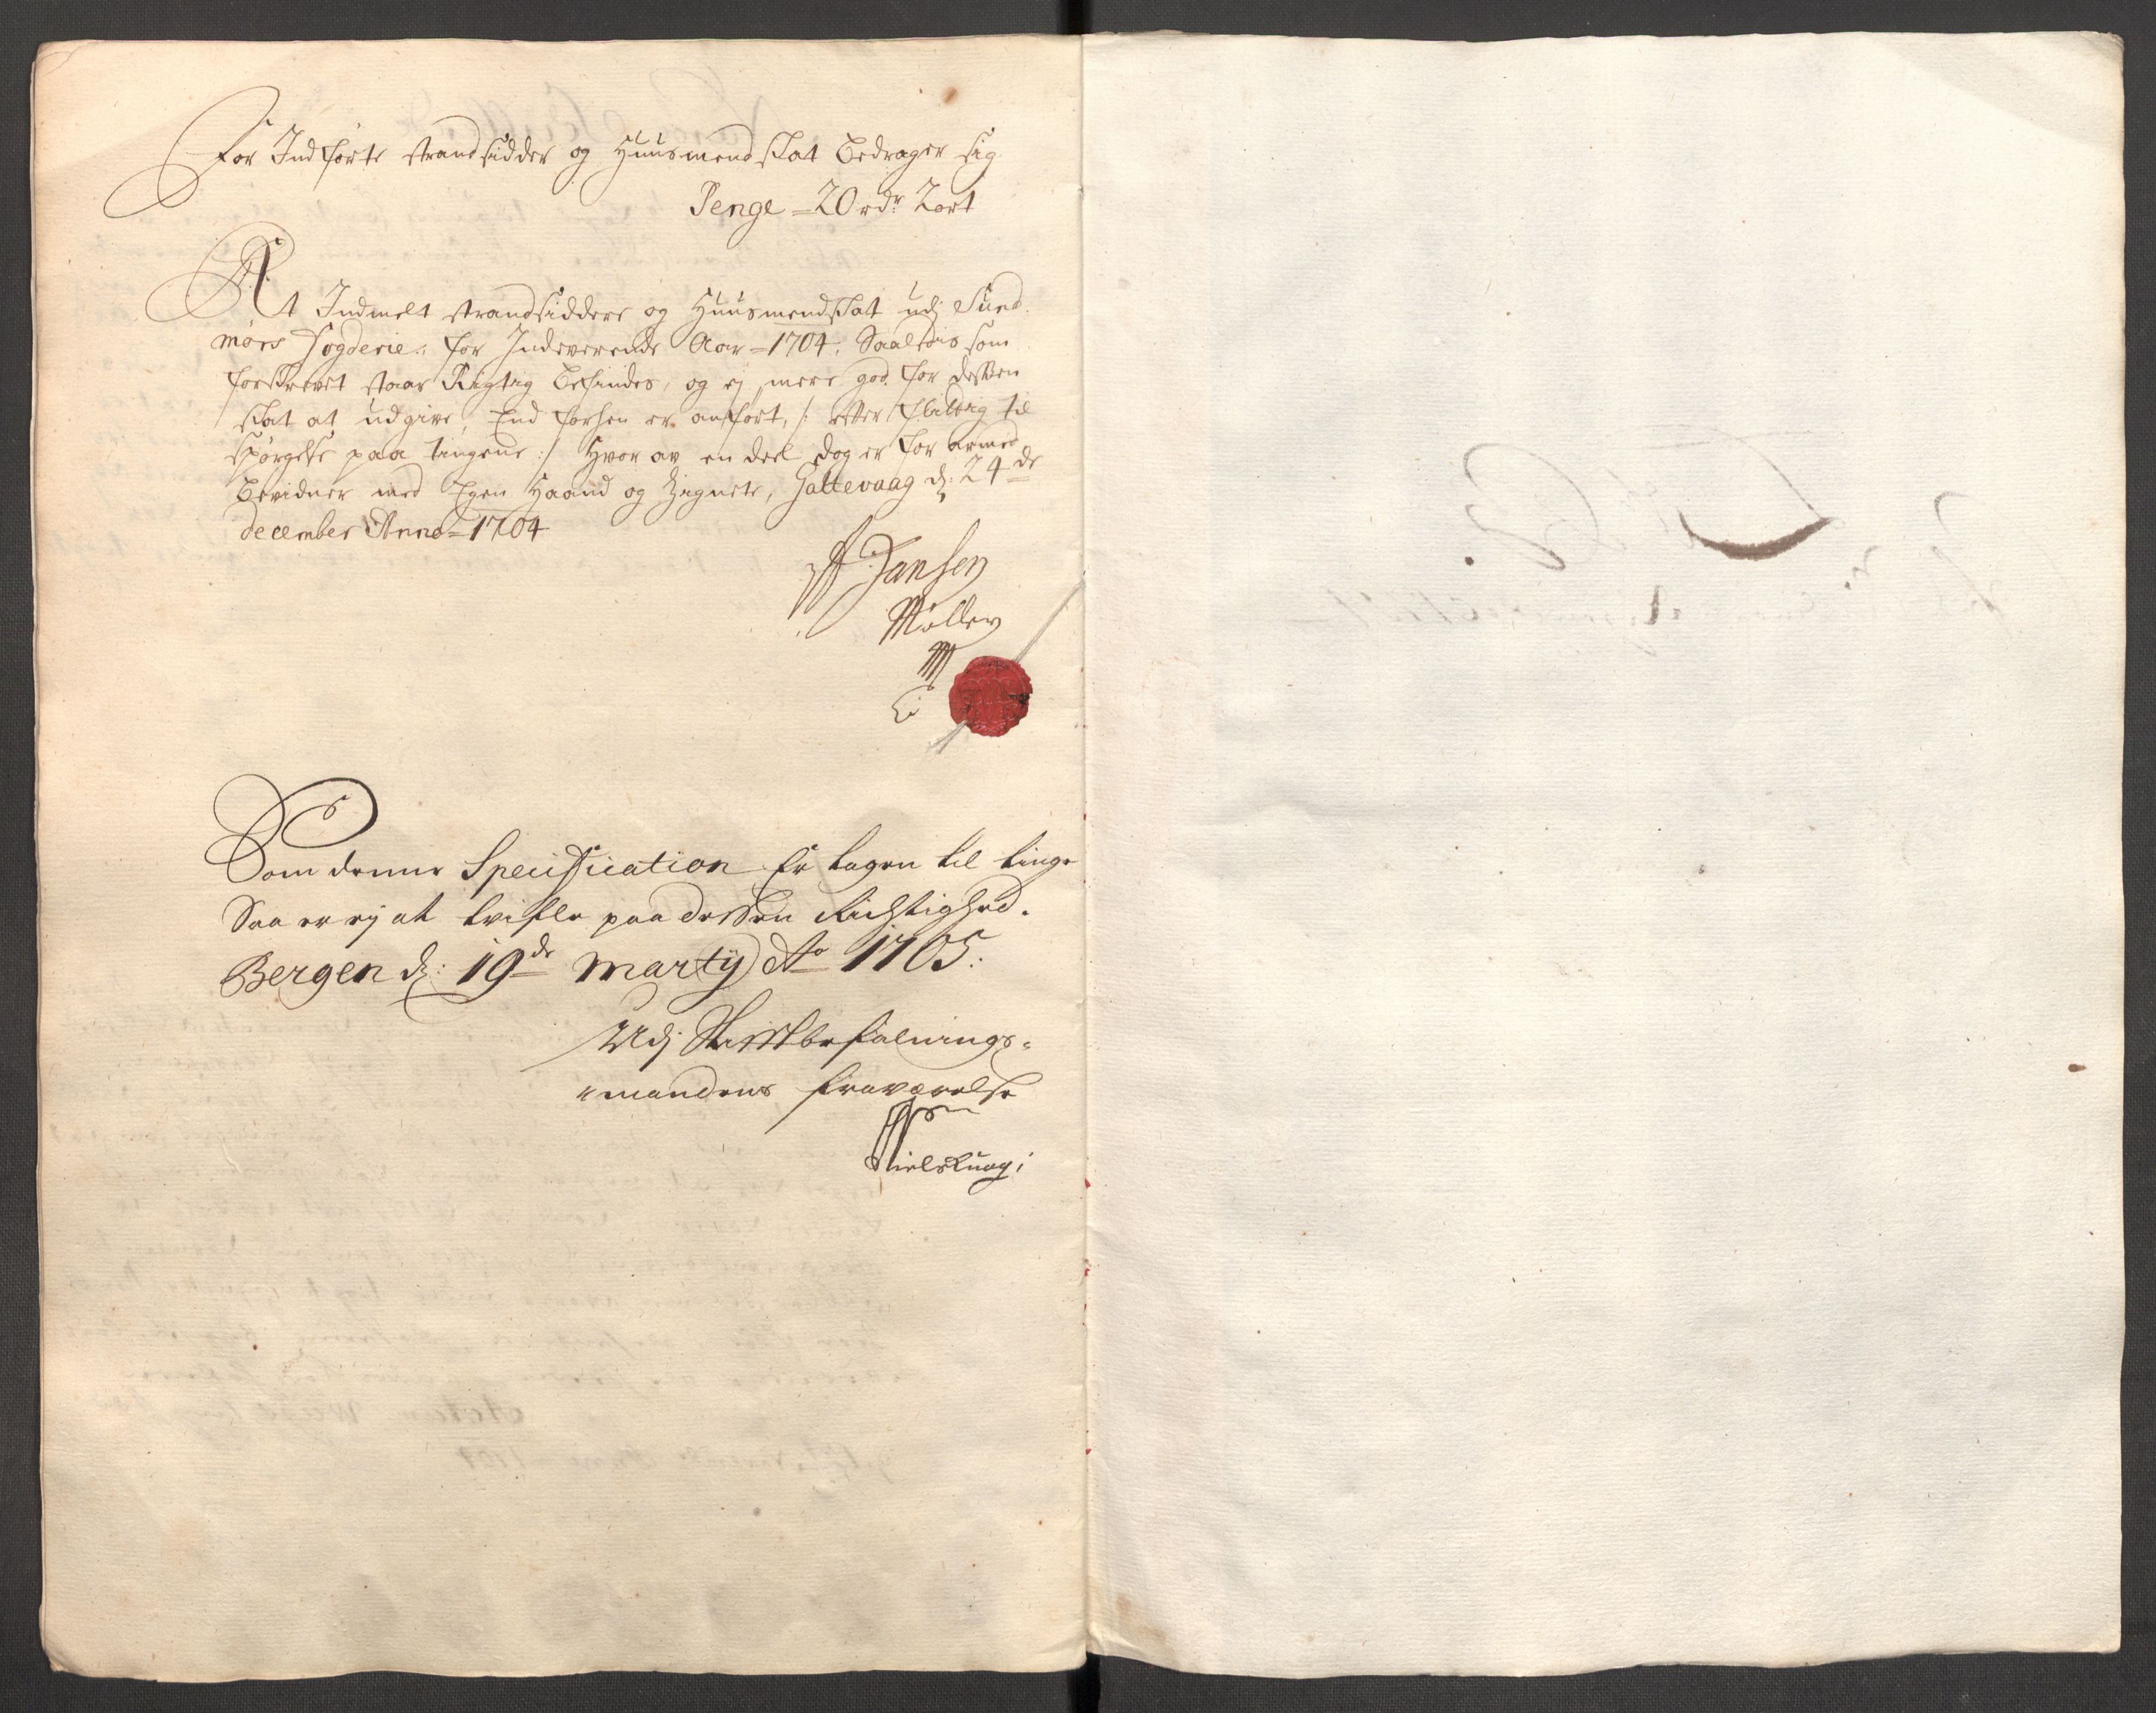 For Indførte strandsidder og Huusmend skat bedrager sig
Penge = 20 rdr 2 ort
At Indmelt strandsiddere og Huusmendskat udj Sund
mørs Fogderie, for Indeverende Aar = 1704, Saaledis som
forskrevet staar Rigtig befindes, og ej mere god for dessen
skat at udgive, End forhen er anført, /: efter flittig til
spørgelse paa tingene :/ Hvor av en deel dog er for armed
Bevidner med Egen Haand og Zignete, Gattevaag d: 24de
december Anno = 1704
Jansen
Møller
Som denne Specification Er tagen til tinge
Saa er ej at tvifle paa dessen Richtighed.
Bergen d: 19de Martij Ao 1705:
Udj Stiftbefalnings=
=mandens fraværelse
Niels Knag: